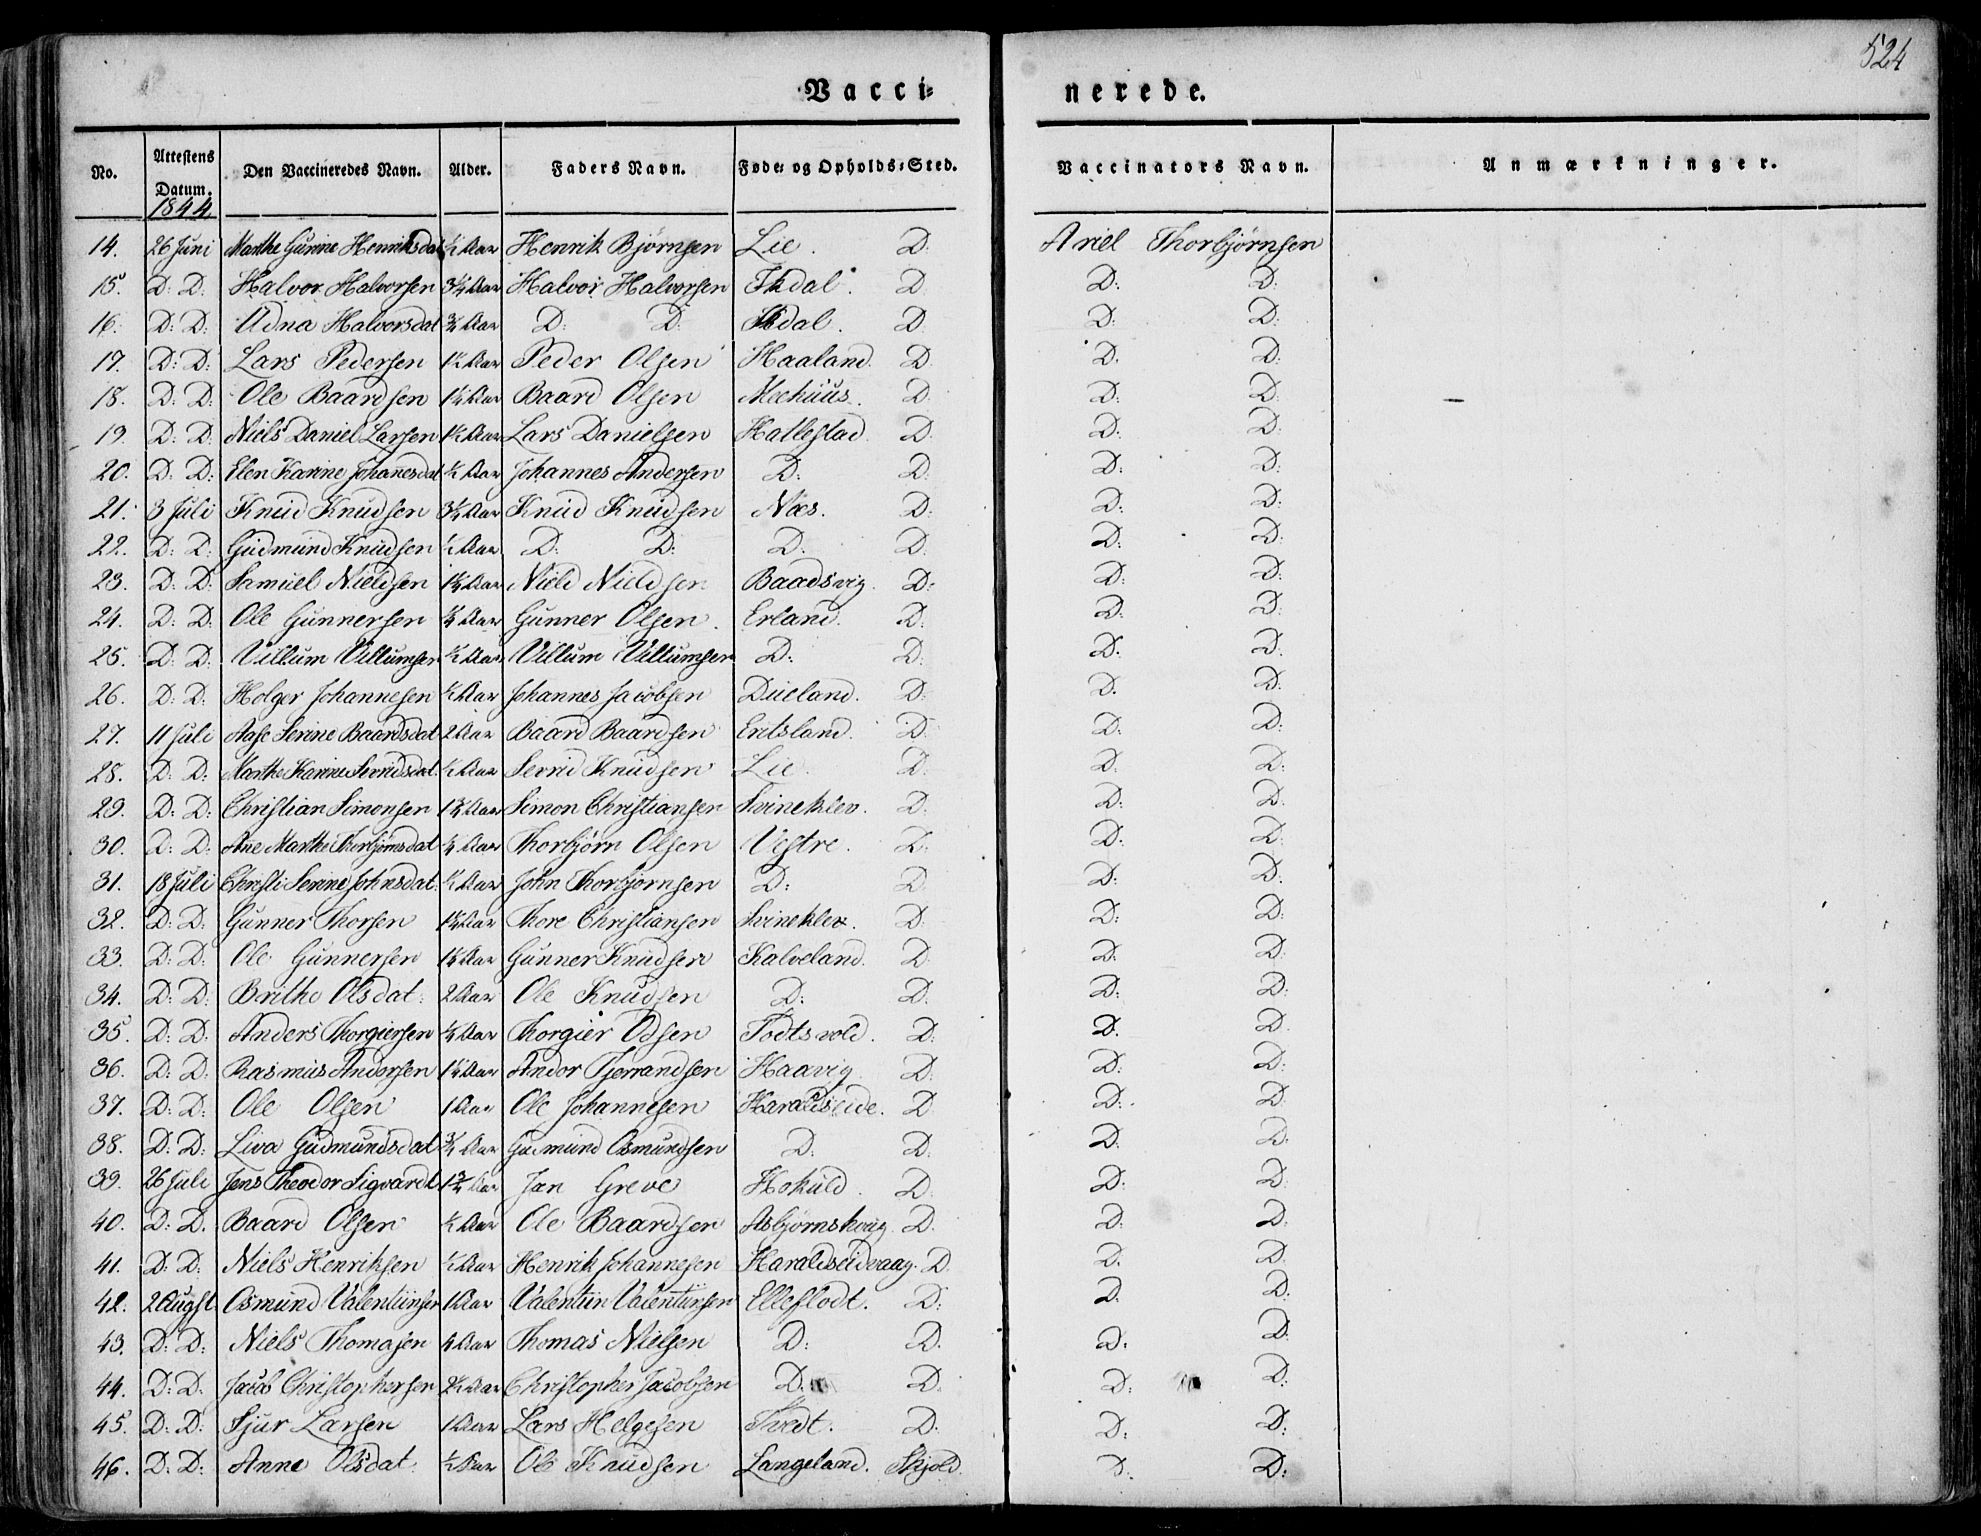 524
Vacci= nerede.
No. Attestens Datum. Den Vaccineredes Navn. Alder. Faders Navn. Føde= og Opholds=Sted. Vaccinators Navn. Anmærkninger.
1844
14. 26 Juni Marthe Gurine Henriksdat ½ Aar Henrik Bjørnsen Lie. D: Ariel Thorbjørnsen
15. D: D: Halvor Halvorsen 3¼ Aar Halvor Halvorsen Isdal. D: D: D:
16. D: D: Udna Halvorsdat ¾ Aar D: D: Isdal. D: D: D:
17. D: D: Lars Pedersen 1½ Aar Peder Olsen Haaland. D: D: D:
18. D: D: Ole Baardsen 1¼ Aar Baard Olsen Meehuus. D: D: D:
19. D: D: Niels Daniel Larsen 1½ Aar Lars Danielsen Hatlestad D: D: D:
20. D: D: Elen Karine Johanesdat ½ Aar Johannes Andersen D: D: D: D:
21. 3 Juli Knud Knudsen 3¼ Aar Knud Knudsen Næs. D: D: D:
22. D: D: Gudmund Knudsen ½ Aar D: D: D: D: D: D:
23. D: D: Samuel Nieldsen 1¾ Aar Nield Nieldsen Baadsvig. D: D: D:
24. D: D: Ole Gunnersen ¾ Aar Gunner Olsen. Erland. D: D: D:
25. D: D: Villum Villumsen ½ Aar Villum Villumsen D: D: D: D:
26. D: D: Holger Johannesen ½ Aar Johannes Jacobsen Dueland. D: D: D:
27. 11 Juli Aase Serine Baardsdat 2 Aar Baard Baardsen Eritsland. D: D: D:
28. D: D: Marthe Karine Sevridsdat. ½ Aar Sevrid Knudsen Lie. D: D: D:
29. D: D: Christian Simonsen 1¾ Aar Simon Christiansen Svineklev. D: D: D:
30. D: D: Ane Marthe Thorbjørnsdat ¼ Aar Thorbjørn Olsen Vestre. D: D: D:
31. 18 Juli Christi Serine Johnsdat. ½ Aar John Thorbjørnsen D: D: D: D:
32. D: D: Gunner Thorsen 1¾ Aar Thore Christiansen Svineklev. D: D: D:
33. D: D: Ole Gunnersen 1¼ Aar Gunner Knudsen Kalveland. D: D: D:
34. D: D: Brithe Olsdat: 2 Aar Ole Knudsen D: D: D: D:
35. D: D: Anders Thorgiersen ¼ Aar Thorgier Odsen Todtsvold. D: D: D:
36. D: D: Rasmus Andorsen 1¼ Aar Andor Tjerrandsen Haavig D: D: D:
37. D: D: Ole Olsen 1 Aar Ole Johannesen Haraldseide. D: D: D:
38. D: D: Liva Gudmundsdat ¾ Aar Gudmund Osmundsen D: D: D: D:
39. 26 Juli Jens Theodor Sigvardt 1¾ Aar Jan Greve Hokuld. D: D: D:
40. D: D: Baard Olsen ½ Aar Ole Baardsen Asbjørnskvig. D: D: D:
41. D: D: Niels Henriksen ½ Aar Henrik Johannesen Haraldseidvaag. D: D: D:
42. 2 Augst Osmund Valentiinsen 1 Aar Valentiin Valentiinsen Elleflodt. D: D: D:
43. D: D: Niels Thomasen ¼ Aar Thomas Nielsen D: D: D: D:
44. D: D: Jacob Christophersen 2½ Aar Christopher Jacobsen D: D: D: D:
45. D: D: Sjur Larsen 1 Aar Lars Helgesen Tvedt. D: D: D:
46. D: D: Anne Olsdat. ½ Aar Ole Knudsen Langeland. Skjold. D: D: